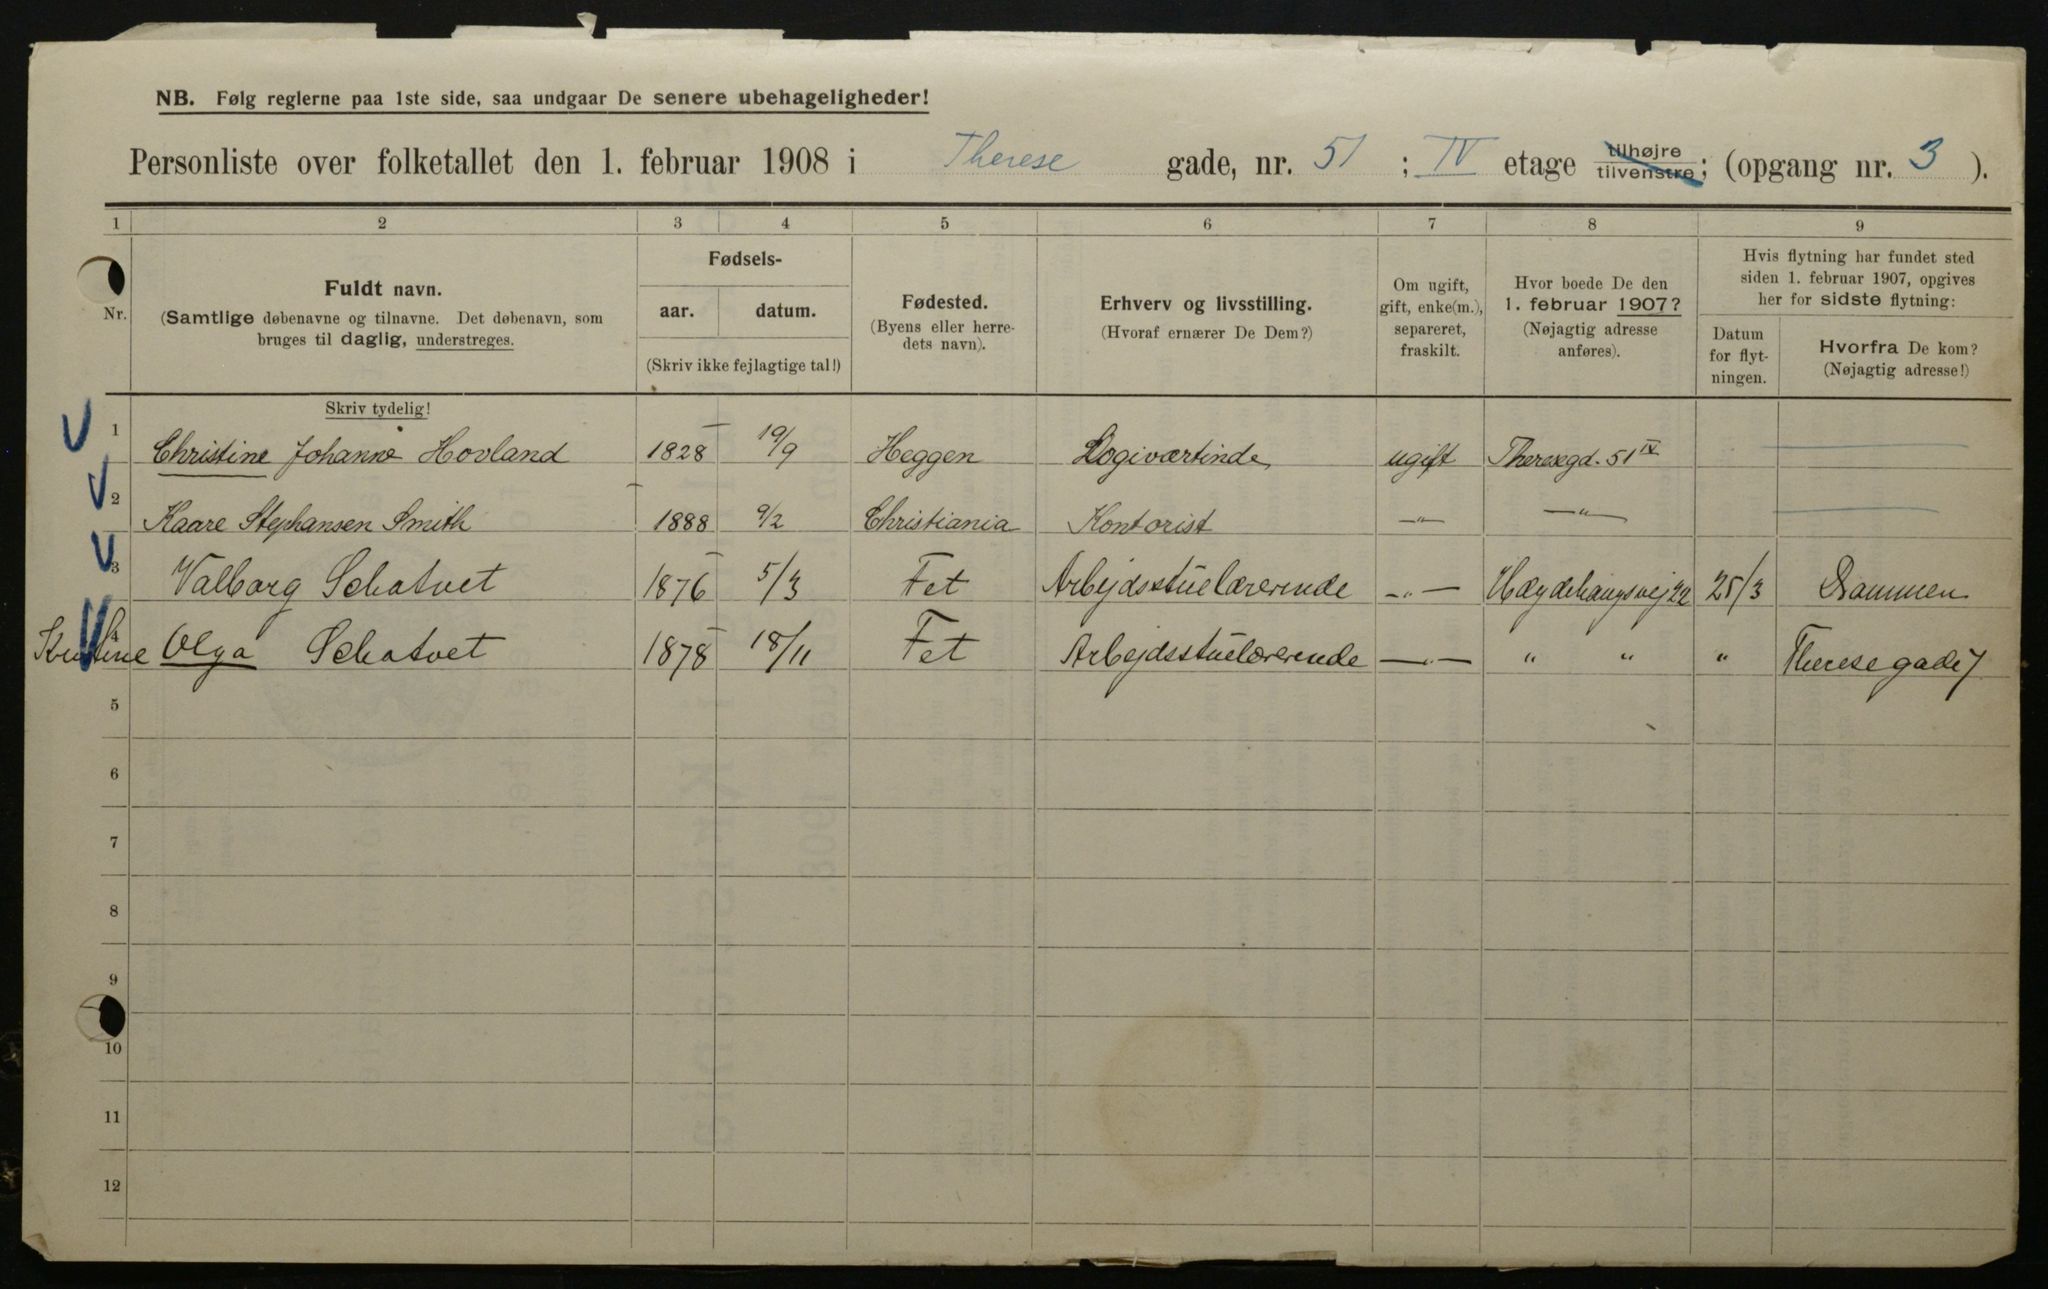 NB. Følg reglerne paa 1ste side, saa undgaar De senere ubehageligheder!
Personliste over folketallet den 1. februar 1908 i Therese gade, nr. 51 ; IV etage tilhøjre tilvenstre; (opgang nr. 3 ).
1 2 3 4 5 6 7 8 9
Nr.
Fuldt navn.
(Samtlige døbenavne og tilnavne. Det døbenavn, som
bruges til daglig, understreges.
Skriv tydelig!
Fødsels-
aar. datum.
(Skriv ikke fejlagtige tal!)
Fødested.
(Byens eller herre-
dets navn).
Erhverv og livsstilling.
(Hvoraf ernærer De Dem?)
Om ugift,
gift, enke(m.),
separeret,
fraskilt.
Hvor boede De den
1. februar 1907?
(Nøjagtig adresse
anføres).
Hvis flytning har fundet sted
siden 1. februar 1907, opgives
her for sidste flytning:
Datum
for flyt-
ningen.
Hvorfra De kom?
(Nøjagtig adresse!)
1 Christine Johanne Hovland 1828 19/9 Heggen Logiværtinde ugift Theresegd. 51 IV
2 Kaare Stephansen Smith 1888 9/2 Christiania Kontorist —"— —"—
3 Valborg Schatvet 1876 5/3 Fet Arbejdsstuelærerinde —"— 22 25/3 Drammen
4 Olga Schatvet 1878 18/11 Fet Arbejdsstuelærerinde —"— " " " Theresegade
5
6
7
8
9
10
11
12